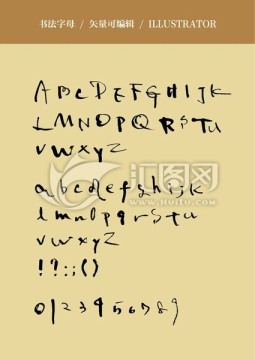 书法字母 / 矢量可编辑 / ILLUSTRATOR
ABCDEFGHIJK
LMNOPQRSTU
VWXYZ
汇图网
www.huitu.com
abcdefghijk
lmnopqrstu
vwxyz
!?:;()
0123456789